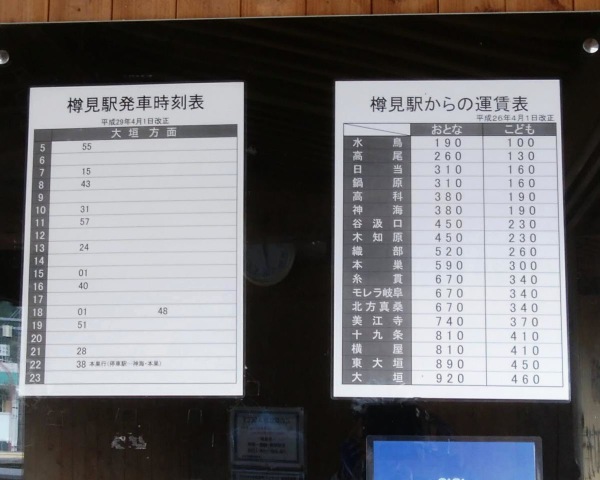 樽見駅発車時刻表
平成29年4月1日改正
大垣方面
5 55
6
7 15
8 43
9
10 31
11 57
12
13 24
14
15 01
16 40
17
18 01 48
19 51
20
21 28
22 38 本巣行(停車駅…神海・本巣)
23
樽見駅からの運賃表
平成26年4月1日改正
おとな こども
水鳥 190 100
高尾 260 130
日当 310 160
鍋原 310 160
高科 380 190
神海 380 190
谷汲口 450 230
木知原 450 230
織部 520 260
本巣 590 300
糸貫 670 340
モレラ岐阜 670 340
北方真桑 670 340
美江寺 740 370
十九条 810 410
横屋 810 410
東大垣 890 450
大垣 920 460